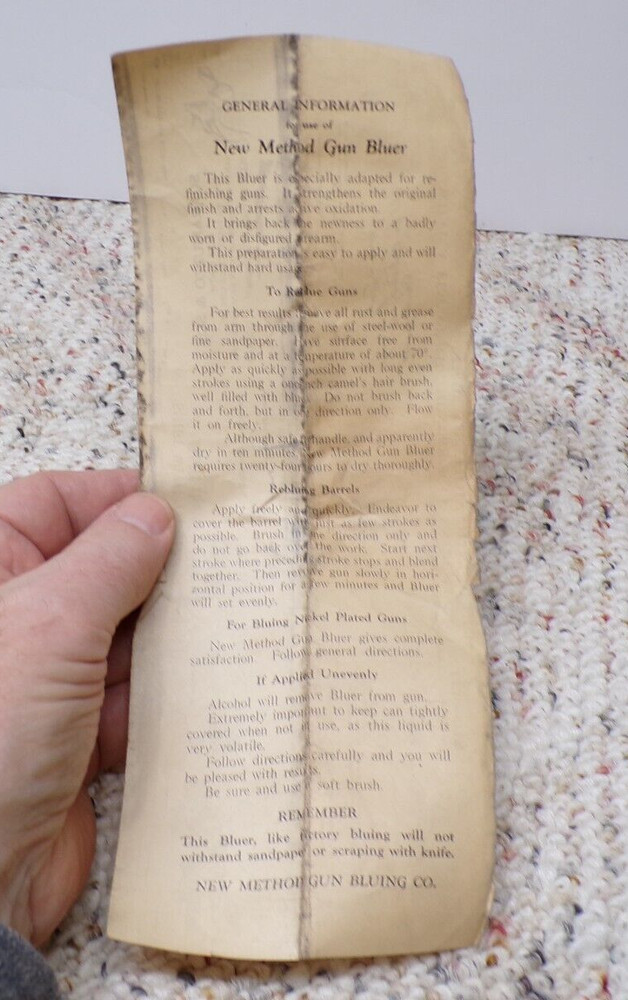 GENERAL INFORMATION
for use of
New Method Gun Bluer
This Bluer is especially adapted for re-
finishing guns. It strengthens the original
finish and arrests active oxidation.
It brings back the newness to a badly
worn or disfigured firearm.
This preparation is easy to apply and will
withstand hard usage.
To Reblue Guns
For best results remove all rust and grease
from arm through the use of steel-wool or
fine sandpaper. Have surface free from
moisture and at a temperature of about 70°.
Apply as quickly as possible with long even
strokes using a one inch camel's hair brush,
well filled with bluer. Do not brush back
and forth, but in one direction only. Flow
it on freely.
Although safe to handle, and apparently
dry in ten minutes New Method Gun Bluer
requires twenty-four hours to dry thoroughly.
Rebluing Barrels
Apply freely and quickly. Endeavor to
cover the barrel with just as few strokes as
possible. Brush in one direction only and
do not go back over the work. Start next
stroke where preceding stroke stops and blend
together. Then revolve gun slowly in hori-
zontal position for a few minutes and Bluer
will set evenly.
For Bluing Nickel Plated Guns
New Method Gun Bluer gives complete
satisfaction. Follow general directions.
If Applied Unevenly
Alcohol will remove Bluer from gun.
Extremely important to keep can tightly
covered when not in use, as this liquid is
very volatile.
Follow directions carefully and you will
be pleased with results.
Be sure and use a soft brush.
REMEMBER
This Bluer, like factory bluing will not
withstand sandpaper or scraping with knife.
NEW METHOD GUN BLUING CO.